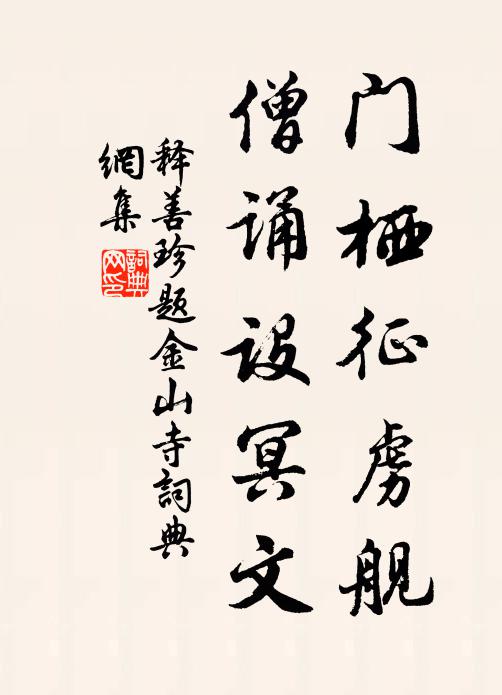 门栖征虏舰
僧诵设冥文
释善珍题金山寺詞典
網集
詞典
网印